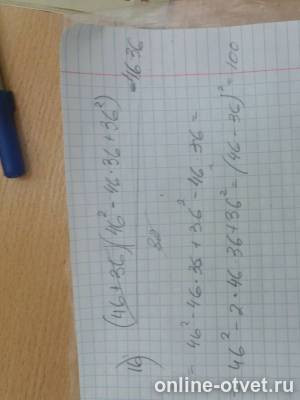 1б) (46+36)(46² - 46·36 + 36²)
- 46·36
82
= 46² - 46·36 + 36² - 46·36 =
46² - 2·46·36 + 36² = (46 - 36)² = 100
online-otvet.ru